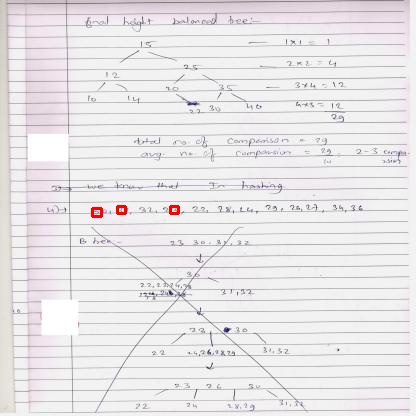 final height balanced tree:-
15 — 1x1 = 1
25 — 2x2 = 4
12
20 35 — 3x4 = 12
10 14 22 30 40 4x3 = 12
29
total no. of comparison = 29
avg. no. of comparison = 29
we know that In hashing
4)→ 32, 22, 28, 24, 29, 26, 27, 34, 36
B tree:- 23 30, 31, 32
30
31, 32
23 30
22 24, 26, 28, 29 31, 32
23 26 30
22 24 28, 29 31, 32